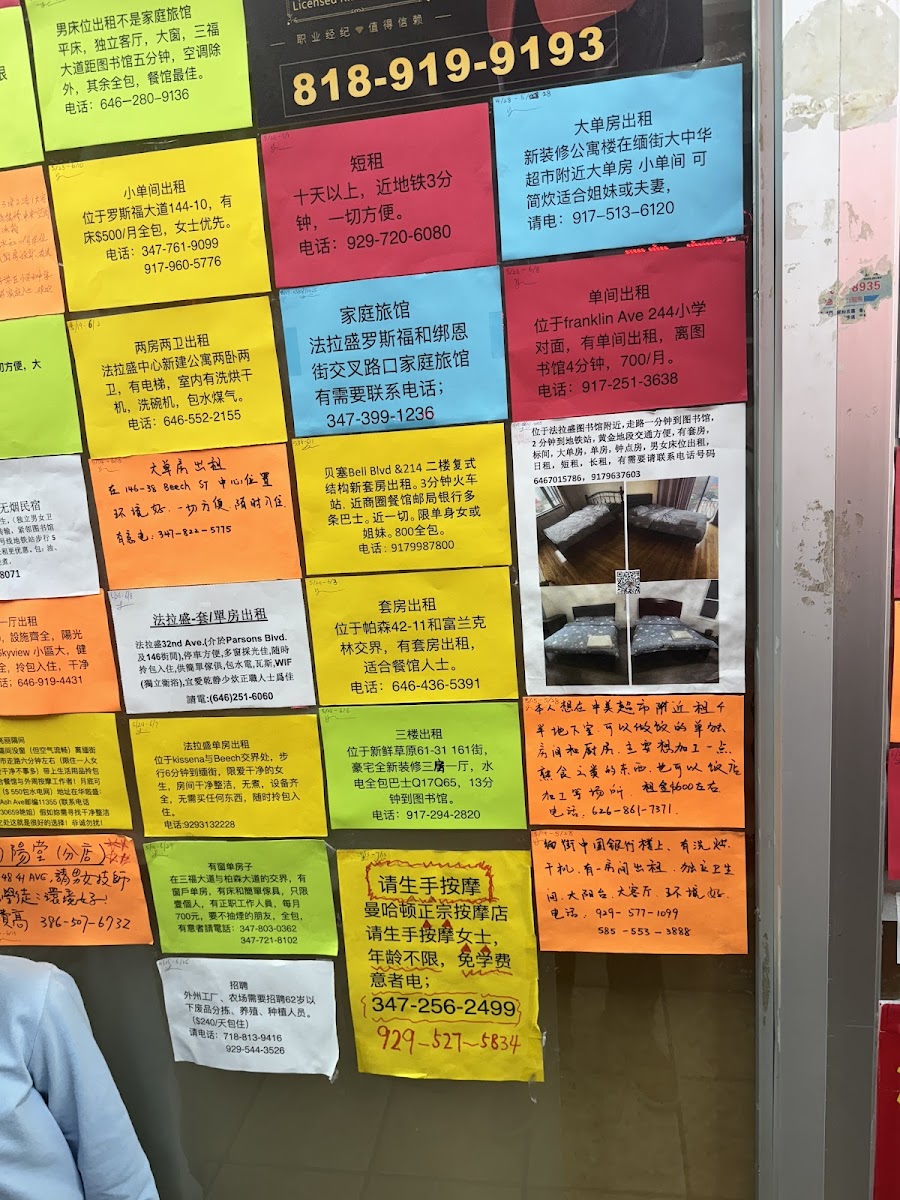 职业经纪 值得信赖
818-919-9193
男床位出租不是家庭旅馆
平床，独立客厅，大窗，三福
大道距图书馆五分钟，空调除
外，其余全包，餐馆最佳。
电话：646-280-9136
小单间出租
位于罗斯福大道144-10，有
床$500/月全包，女士优先。
电话：347-761-9099
917-960-5776
短租
十天以上，近地铁3分
钟，一切方便。
电话：929-720-6080
大单房出租
新装修公寓楼在缅街大中华
超市附近大单房 小单间 可
简炊适合姐妹或夫妻，
请电：917-513-6120
两房两卫出租
法拉盛中心新建公寓两卧两
卫，有电梯，室内有洗烘干
机，洗碗机，包水煤气。
电话：646-552-2155
家庭旅馆
法拉盛罗斯福和绑恩
街交叉路口家庭旅馆
有需要联系电话；
347-399-1236
单间出租
位于franklin Ave 244小学
对面，有单间出租，离图
书馆4分钟，700/月。
电话：917-251-3638
切方便，大
大单房出租
在146-38 Beech ST 中心位置
环境好．一切方便．随时入住．
有意电：347-822-5775
贝塞Bell Blvd &214 二楼复式
结构新套房出租。3分钟火车
站．近商圈餐馆邮局银行多
条巴士。近一切。限单身女或
姐妹。800全包。
电话：9179987800
位于法拉盛图书馆附近，走路一分钟到图书馆，
2 分钟到地铁站，黄金地段交通方便，有套房，
标间，大单房，单房，钟点房，男女床位出租，
日租，短租，长租，有需要请联系电话号码
6467015786，9179637603
无烟民宿
8071
法拉盛-套/單房出租
法拉盛32nd Ave.(介於Parsons Blvd.
及146街間),停車方便,多窗採光佳,隨時
拎包入住,供簡單傢俱,包水電,瓦斯,WIF
(獨立衛浴),宜愛乾静少炊正職人士爲佳
請電:(646)251-6060
套房出租
位于帕森42-11和富兰克
林交界，有套房出租，
适合餐馆人士。
电话：646-436-5391
一厅出租
，設施齊全，陽光
Skyview 小區大，健
全，拎包入住，干净
646-919-4431
法拉盛单房出租
位于kissena与Beech交界处，步
行6分钟到缅街，限爱干净的女
生，房间干净整洁，无煮，设备齐
全，无需买任何东西，随时拎包入
住。
电话:9293132228
三楼出租
位于新鲜草原61-31 161街，
豪宅全新装修三房一厅，水
电全包巴士Q17Q65，13分
钟到图书馆。
电话：917-294-2820
本人想在中美超市附近租个
半地下室．可以做饭的单独
房间和厨房．主要想加工一点
熟食之类的东西．也可以饭店
加工等场所． 租金1600左右
电话．626-861-7371．
陽堂(分店)
386-507-6732
有窗单房子
在三福大道与柏森大道的交界，有
窗戶單房，有床和簡單傢具，只限
壹個人，有正职工作人員，每月
700元，要不抽煙的朋友，全包，
有意者請電話：347-803-0362
347-721-8102
请生手按摩
曼哈顿正宗按摩店
请生手按摩女士，
年龄不限，免学费
意者电；
347-256-2499
929-527-5834
缅街中国银行楼上．有洗烘
干机．有一房间出租．独立卫生
间．大阳台．大客厅．环境好．
电话．929-577-1099
585-553-3888
招聘
外州工厂、农场需要招聘62岁以
下废品分拣、养殖、种植人员。
（$240/天包住）
请电话：718-813-9416
929-544-3526
8935